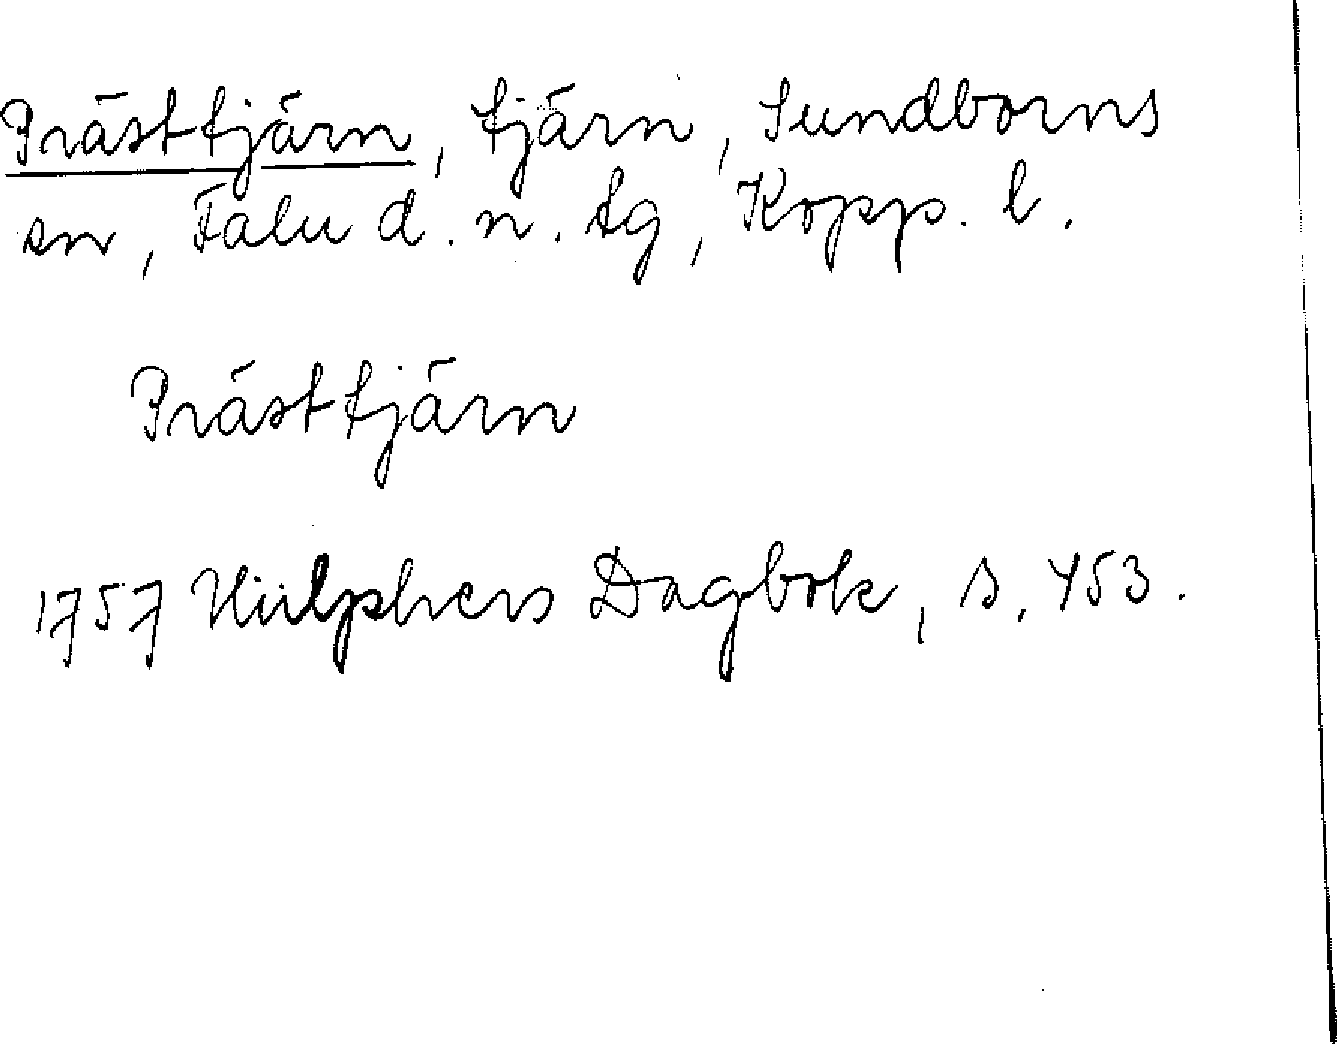 Prästtjärn, tjärn, Sundborns
sn, Falu d. n. tg, Kopp. l.
Prästtjärn
1757 Hülphers Dagbok, s. 453.